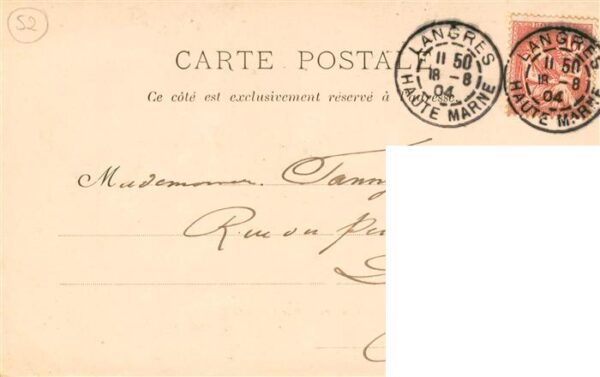 52
CARTE POSTALE
Ce côté est exclusivement réservé à l'adresse.
LANGRES
11 50
18 - 8
04
HAUTE MARNE
LANGRES
11 50
18 - 8
04
HAUTE MARNE
Fanny
Rue du